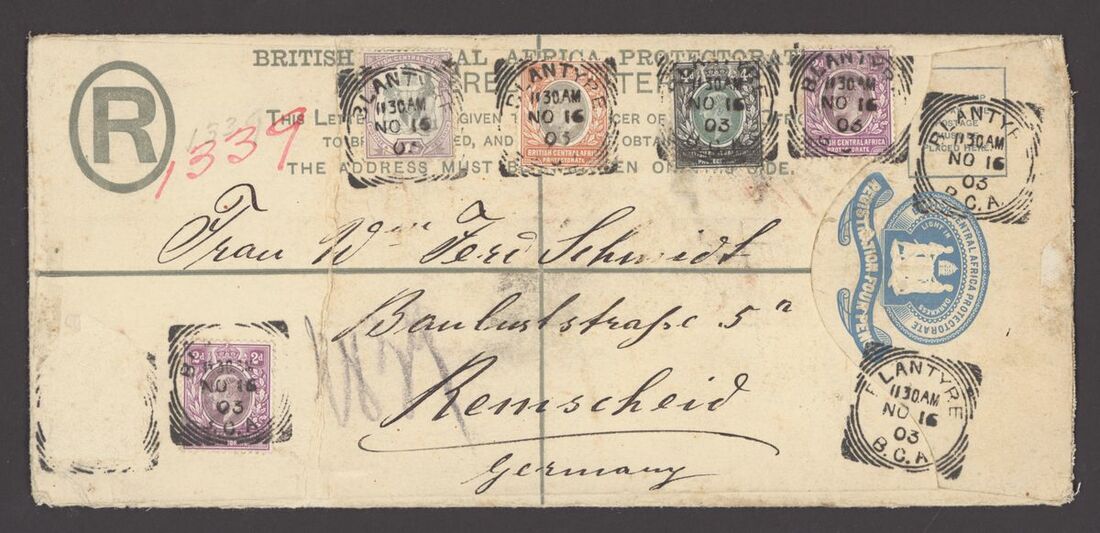 BRITISH AL AFRICA PROTECTORAT
R
THIS LETTE GIVEN
TO BE ED, AND OBTA
THE ADDRESS MUST BE EN ON SIDE.
1339
BRITISH CENTRAL AFRICA
BLANTYRE
11 30 AM
NO 16
03
BLANTYRE
11 30 AM
NO 16
03
BRITISH CENTRAL AFRICA
PROTECTORATE
4d
11 30 AM
NO 16
03
BLANTYRE
11 30 AM
NO 16
03
BRITISH CENTRAL AFRICA
PROTECTORATE
POSTAGE
PLACED HERE.
BLANTYRE
11 30 AM
NO 16
03
B.C.A.
Frau Wwe Ferd Schmidt
Bauluststraße 5a
Remscheid
Germany
REGISTRATION FOURPENCE
CENTRAL AFRICA PROTECTORATE
LIGHT IN
DARKNESS
2d 2d
NO 16
03
C.A
BLANTYRE
11 30 AM
NO 16
03
B.C.A